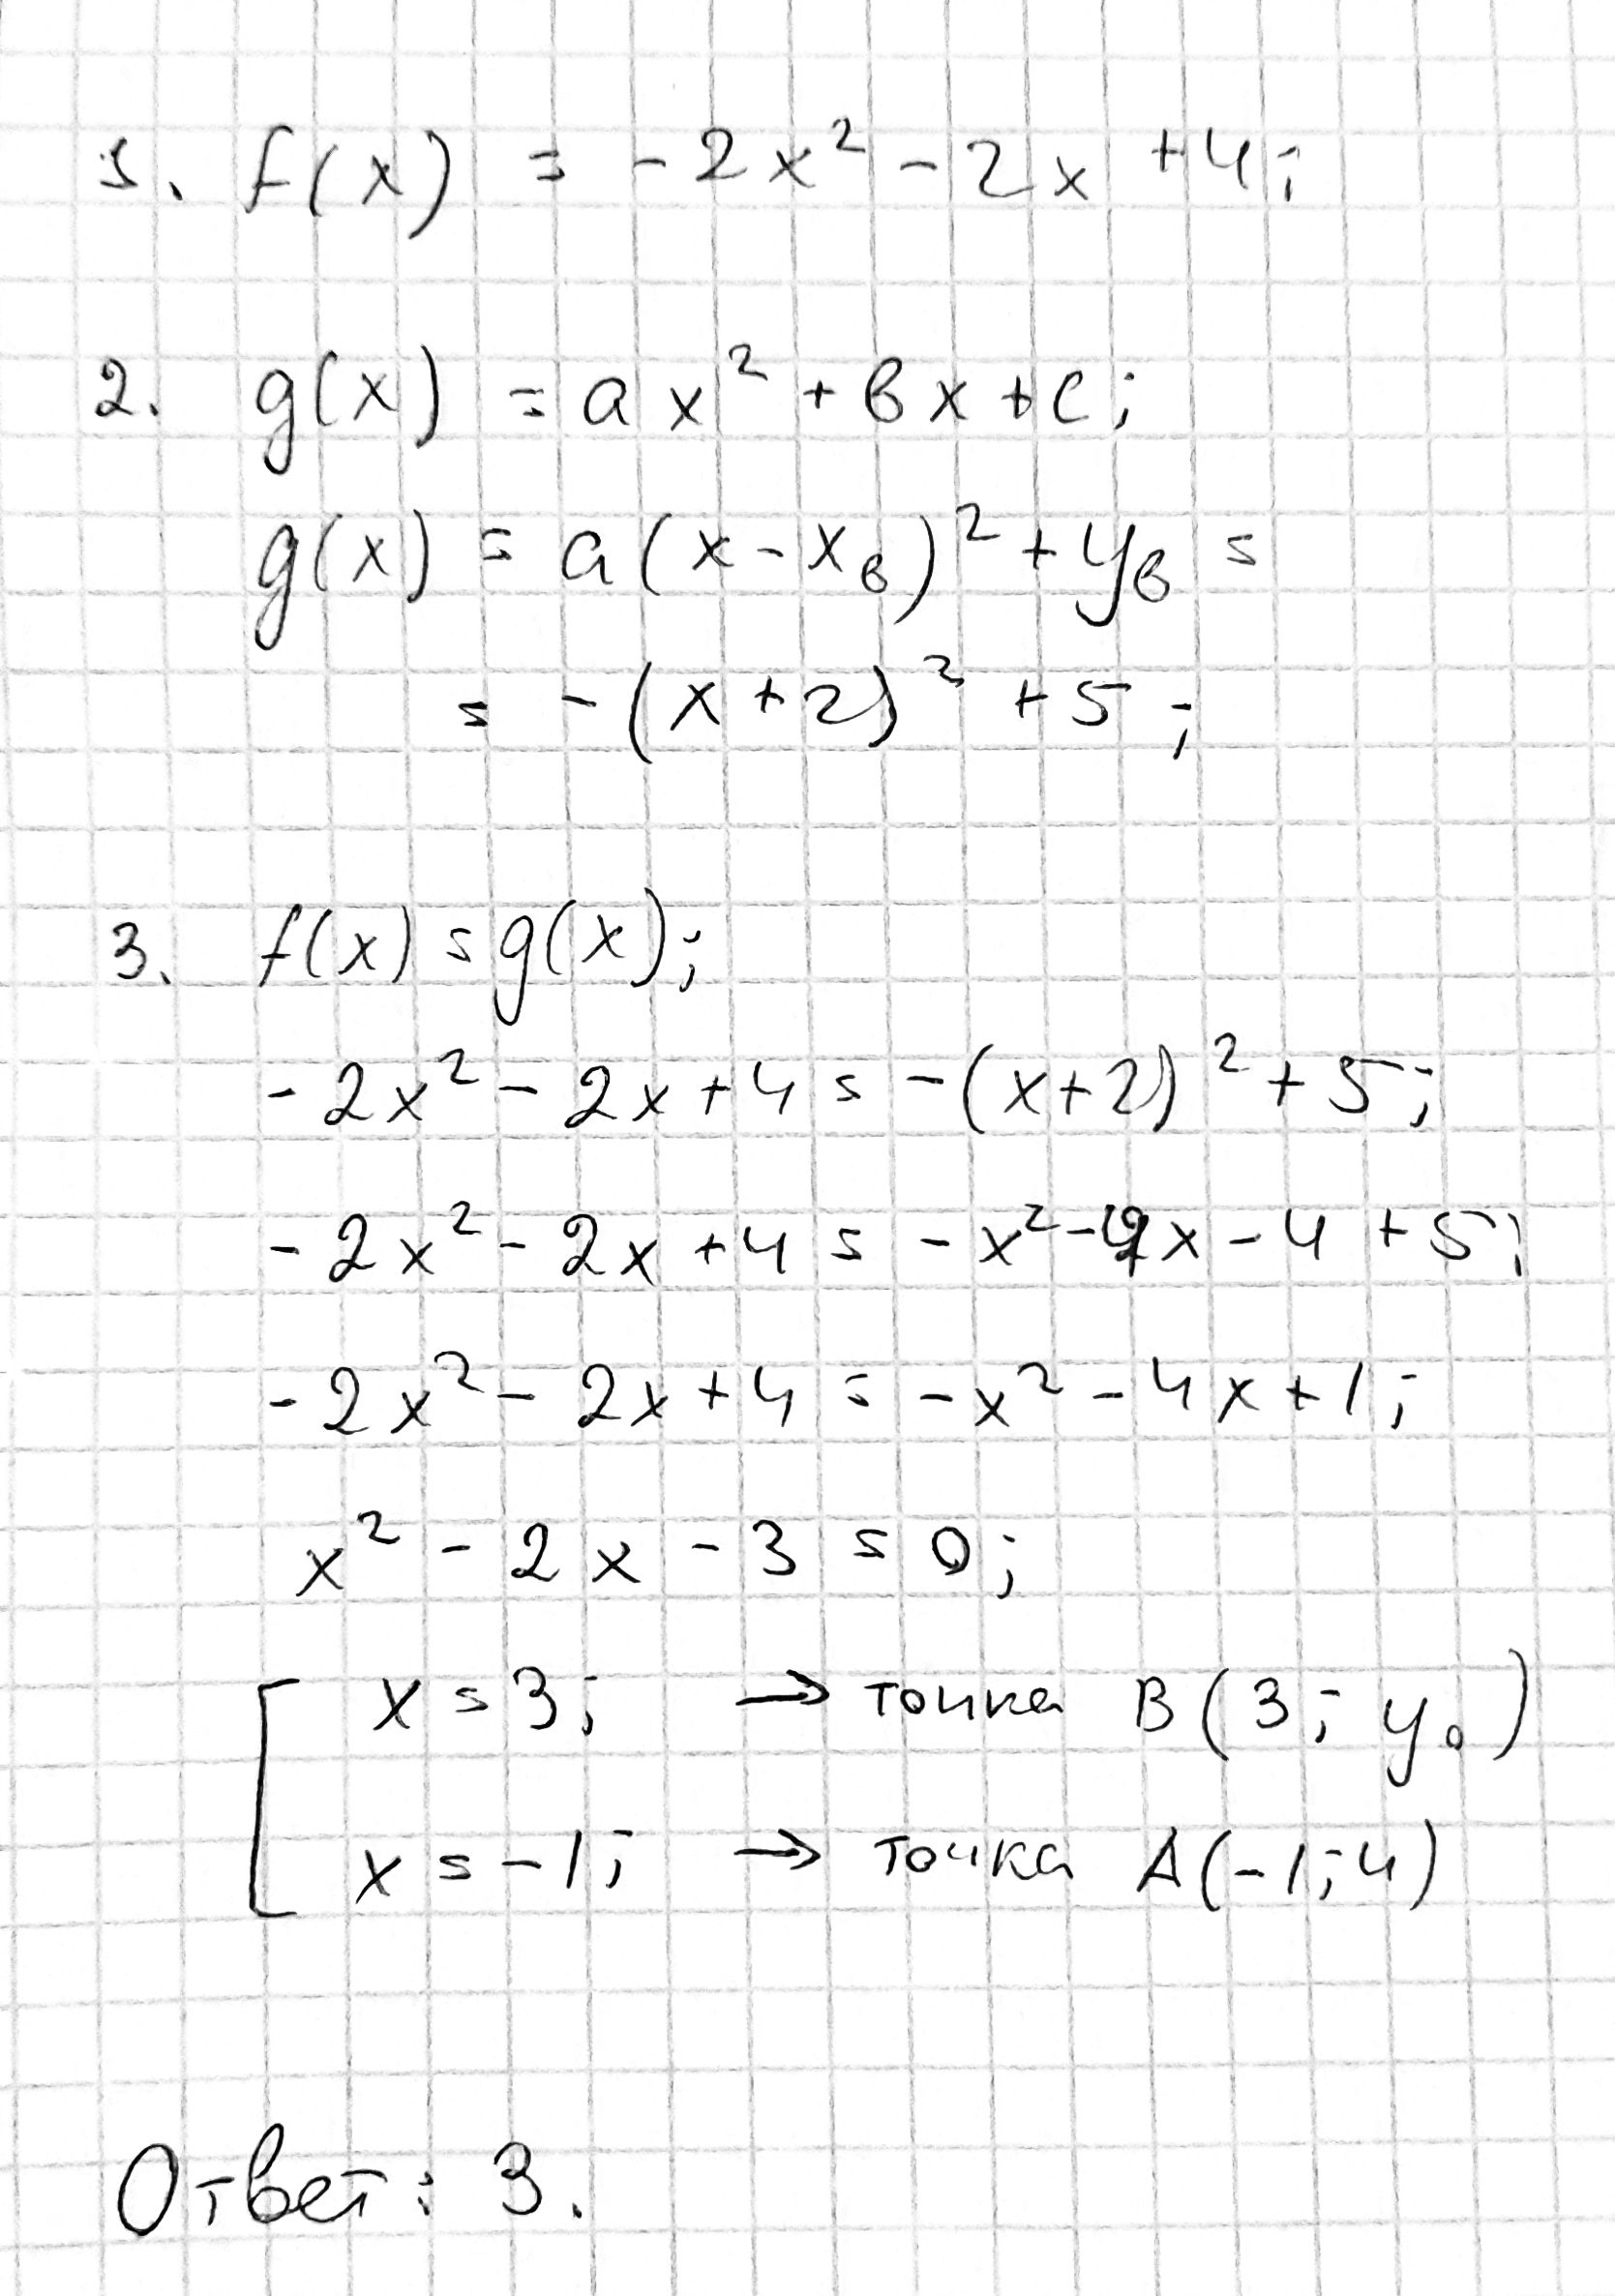 1. f(x) = -2x² - 2x + 4;
2. g(x) = ax² + bx + c;
g(x) = a(x - xв)² + yв =
= -(x + 2)² + 5;
3. f(x) = g(x);
-2x² - 2x + 4 = -(x+2)² + 5;
-2x² - 2x + 4 = -x² - 4x - 4 + 5;
-2x² - 2x + 4 = -x² - 4x + 1;
x² - 2x - 3 = 0;
x = 3; → точка B(3; y₀)
x = -1; → точка A(-1; 4)
Ответ: 3.